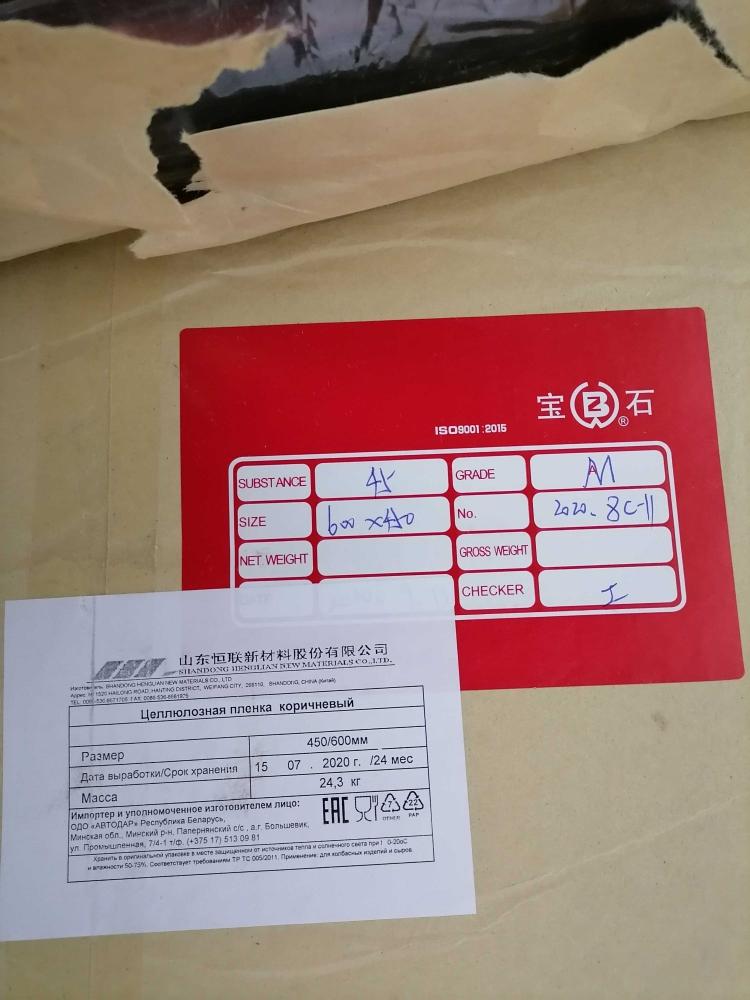 宝 B 石 ®
ISO9001:2015
SUBSTANCE 45 GRADE A
SIZE 600 x450 No. 2020.8C-11
NET. WEIGHT GROSS WEIGHT
CHECKER
山东恒联新材料股份有限公司
SHANDONG HENGLIAN NEW MATERIALS CO.,LTD.
Изготовитель: SHANDONG HENGLIAN NEW MATERIALS CO., LTD
Адрес: № 1520 HAILONG ROAD, HANTING DISTRICT, WEIFANG CITY, 261100, SHANDONG, CHINA (Китай)
TEL: 0086-536-8671705 FAX: 0086-536-8661975
Целлюлозная пленка коричневый
Размер 450/600мм
Дата выработки/Срок хранения 15 07 . 2020 г. /24 мес
Масса 24,3 кг
Импортер и уполномоченное изготовителем лицо:
ОДО «АВТОДАР» Республика Беларусь,
Минская обл., Минский р-н. Папернянский с/с , а.г. Большевик,
ул. Промышленная, 7/4-1 т/ф. (+375 17) 513 09 81
EAC 7 OTHER 22 PAP
Хранить в оригинальной упаковке в месте защищенном от источников тепла и солнечного света при t 0-20оС
и влажности 50-73%. Соответствует требованиям ТР ТС 005/2011. Применение: для колбасных изделий и сыров.